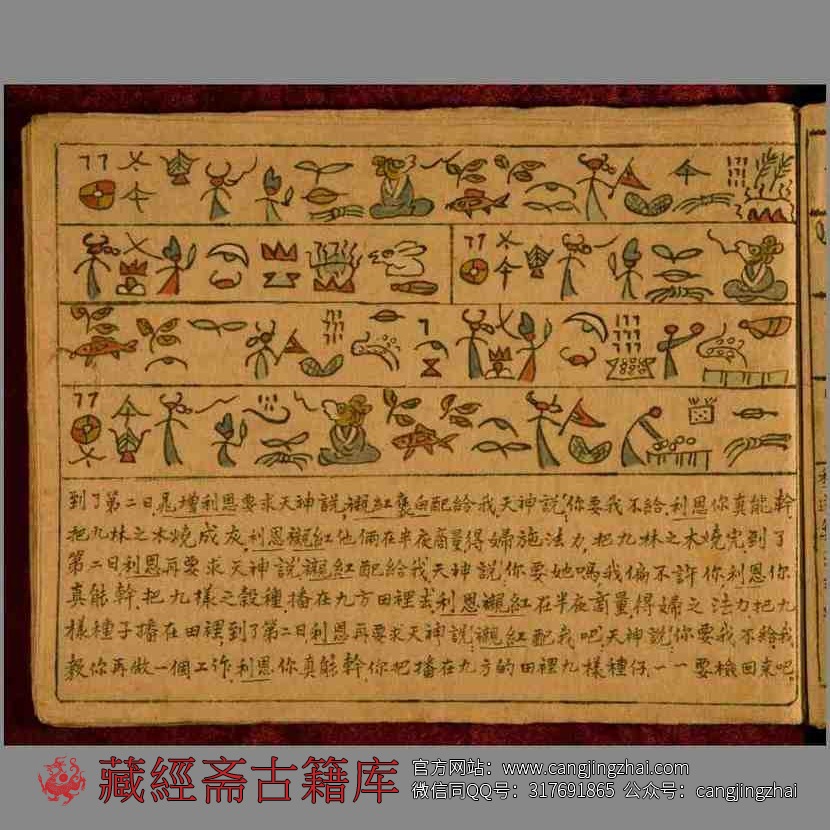 到了第二日晁增利恩要求天神說,襯紅褒白配給我,天神說,你要我不給,利恩你真能幹,
把九林之木燒成灰,利恩襯紅他倆在半夜商量得婦施法力,把九林之木燒完到了
第二日利恩再要求天神說襯紅配給我天神說你要她嗎我偏不許你,利恩你
真能幹,把九樣之穀種播在九方田裡去利恩襯紅在半夜商量,得婦之法力,把九
樣種子播在田裡,到了第二日利恩再要求天神說,襯紅配我吧,天神說,你要我不給,我
教你再做一個工作,利恩你真能幹,你把播在九方的田裡九樣種仔,一一要檢回來吧,
藏經斋古籍库
官方网站:www.cangjingzhai.com
微信同QQ号:317691865 公众号:cangjingzhai